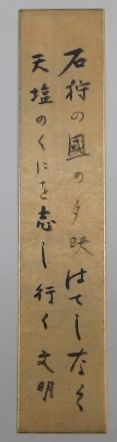 石狩の國の夕映はてしなく
天塩のくにを志し行く 文明